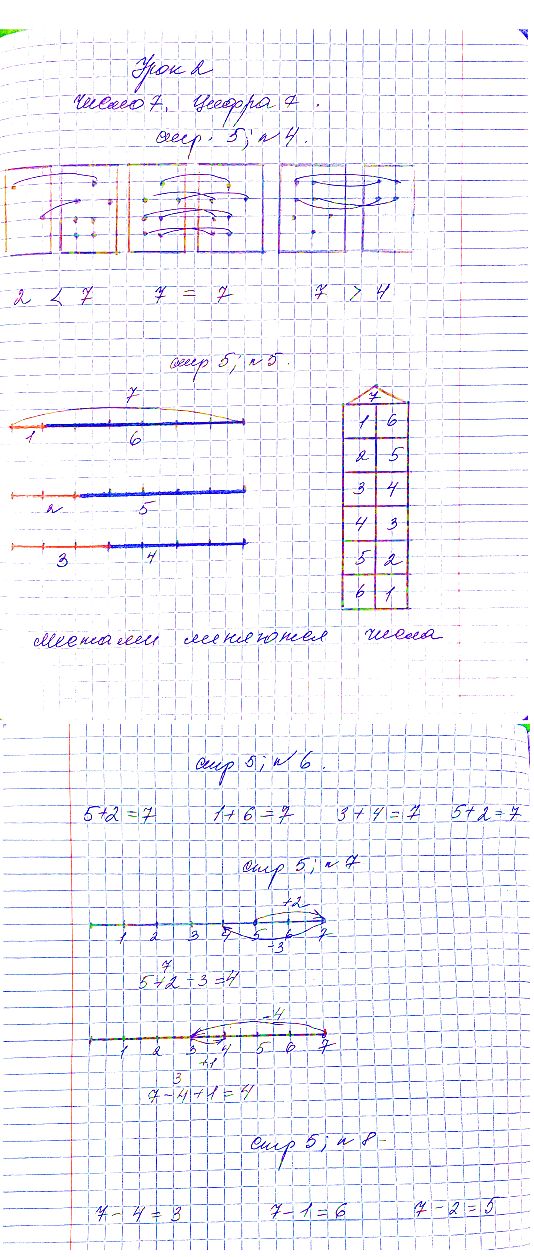 Урок 2
Число 7. Цифра 7.
стр. 5; n 4.
2 < 7 7 = 7 7 > 4
стр 5; n 5
7
1 6
2 5
3 4
7
1 6
2 5
3 4
4 3
5 2
6 1
Местами меняются числа
стр 5; n 6.
5+2=7 1+6=7 3+4=7 5+2=7
стр 5; n 7
+2
1 2 3 4 5 6 7
-3
7
5+2-3=4
-4
1 2 3 4 5 6 7
+1
3
7-4+1=4
стр 5; n 8
7-4=3 7-1=6 7-2=5